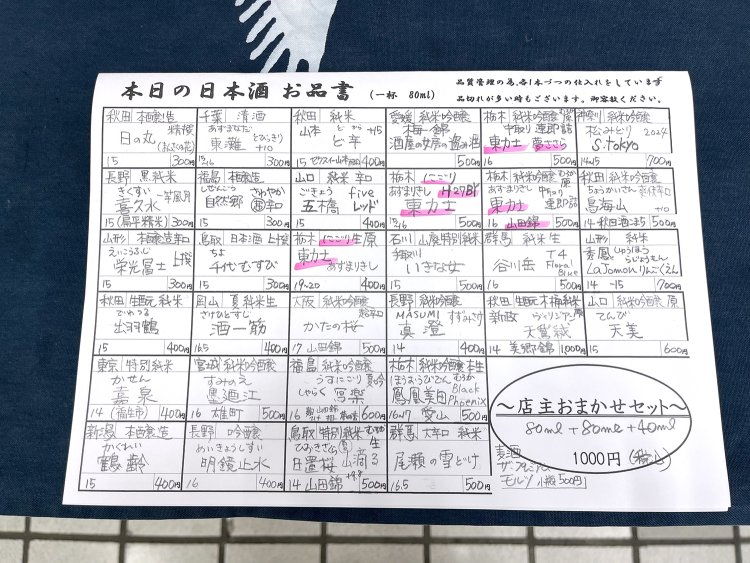 本日の日本酒 お品書 (一杯 80ml)
品質管理の為、各1本づつの仕入れをしています
品切れが多い時もございます。御容赦ください。
秋田 本醸造
日の丸
15 300円
千葉 清酒
東灘
+10
300円
秋田 純米
山本 ど辛 +15
15 400円
愛媛 純米吟醸
梅錦
酒屋の
500円
栃木 純米吟醸
中取り 直詰
東力士 夢ささら
16 500円
神奈川 純米吟醸
松みどり 2024
S.tokyo
700円
長野 純米
きくすい
喜久水 一筝風月
15 (扁平精米) 300円
福島 本醸造
しぜんごう さわやか
自然郷 辛口
15 300円
山口 純米 辛口
ごきょう five
五橋 レッド
15 400円
栃木 にごり
あずまりきし H27BY
東力士
400円
栃木 純米吟醸
あずまりきし
東力士
16 山田錦 500円
秋田 純米吟醸
ちょうかいさん
鳥海山
14 秋田酒こまち 500円
山形 本醸造 辛口
えいこうふじ
栄光冨士 上撰
15 300円
鳥取 日本酒 上撰
ちよ
千代むすび
15 300円
栃木 にごり 生原
東力士
あずまりきし
19~20 400円
石川 山廃特別純米
いきな女
500円
群馬 純米 生
谷川岳
500円
山形 純米
LaJomon
14 -15 700円
秋田 生酛 純米
でわつる
出羽鶴
15 400円
岡山 夏 純米 生
さけひとすじ
酒一筋
16.5 400円
大阪 純米吟醸
超辛口
かたの桜
17 山田錦 400円
長野 純米吟醸
MASUMI すずみさけ
真澄
14 400円
秋田 生酛 木桶純米
新政
天鵞絨
14 美郷錦 1,000円
山口 純米吟醸 原
てんび
天美
15 600円
東京 特別純米
かせん
嘉泉
14 (福生市) 400円
宮城 純米吟醸
すみのえ
墨廼江
16 雄町 500円
福島 純米吟醸
うすにごり
しゃらく 寫楽
16 600円
栃木 純米吟醸
ほうおうびでん Black
鳳凰美田 Phoenix
16~17 愛山 500円
新潟 本醸造
かくれい
鶴齢
15 400円
長野 吟醸
めいきょうしすい
明鏡止水
16 400円
鳥取 特別純米
ひおきざくら
日置桜 山滴る
14 山田錦 500円
群馬 大辛口 純米
尾瀬の雪どけ
16.5 500円
～店主おまかせセット～
80ml + 80ml + 40ml
1000円 (税込)
麦酒
ザ・プレミアム
モルツ 小瓶 500円